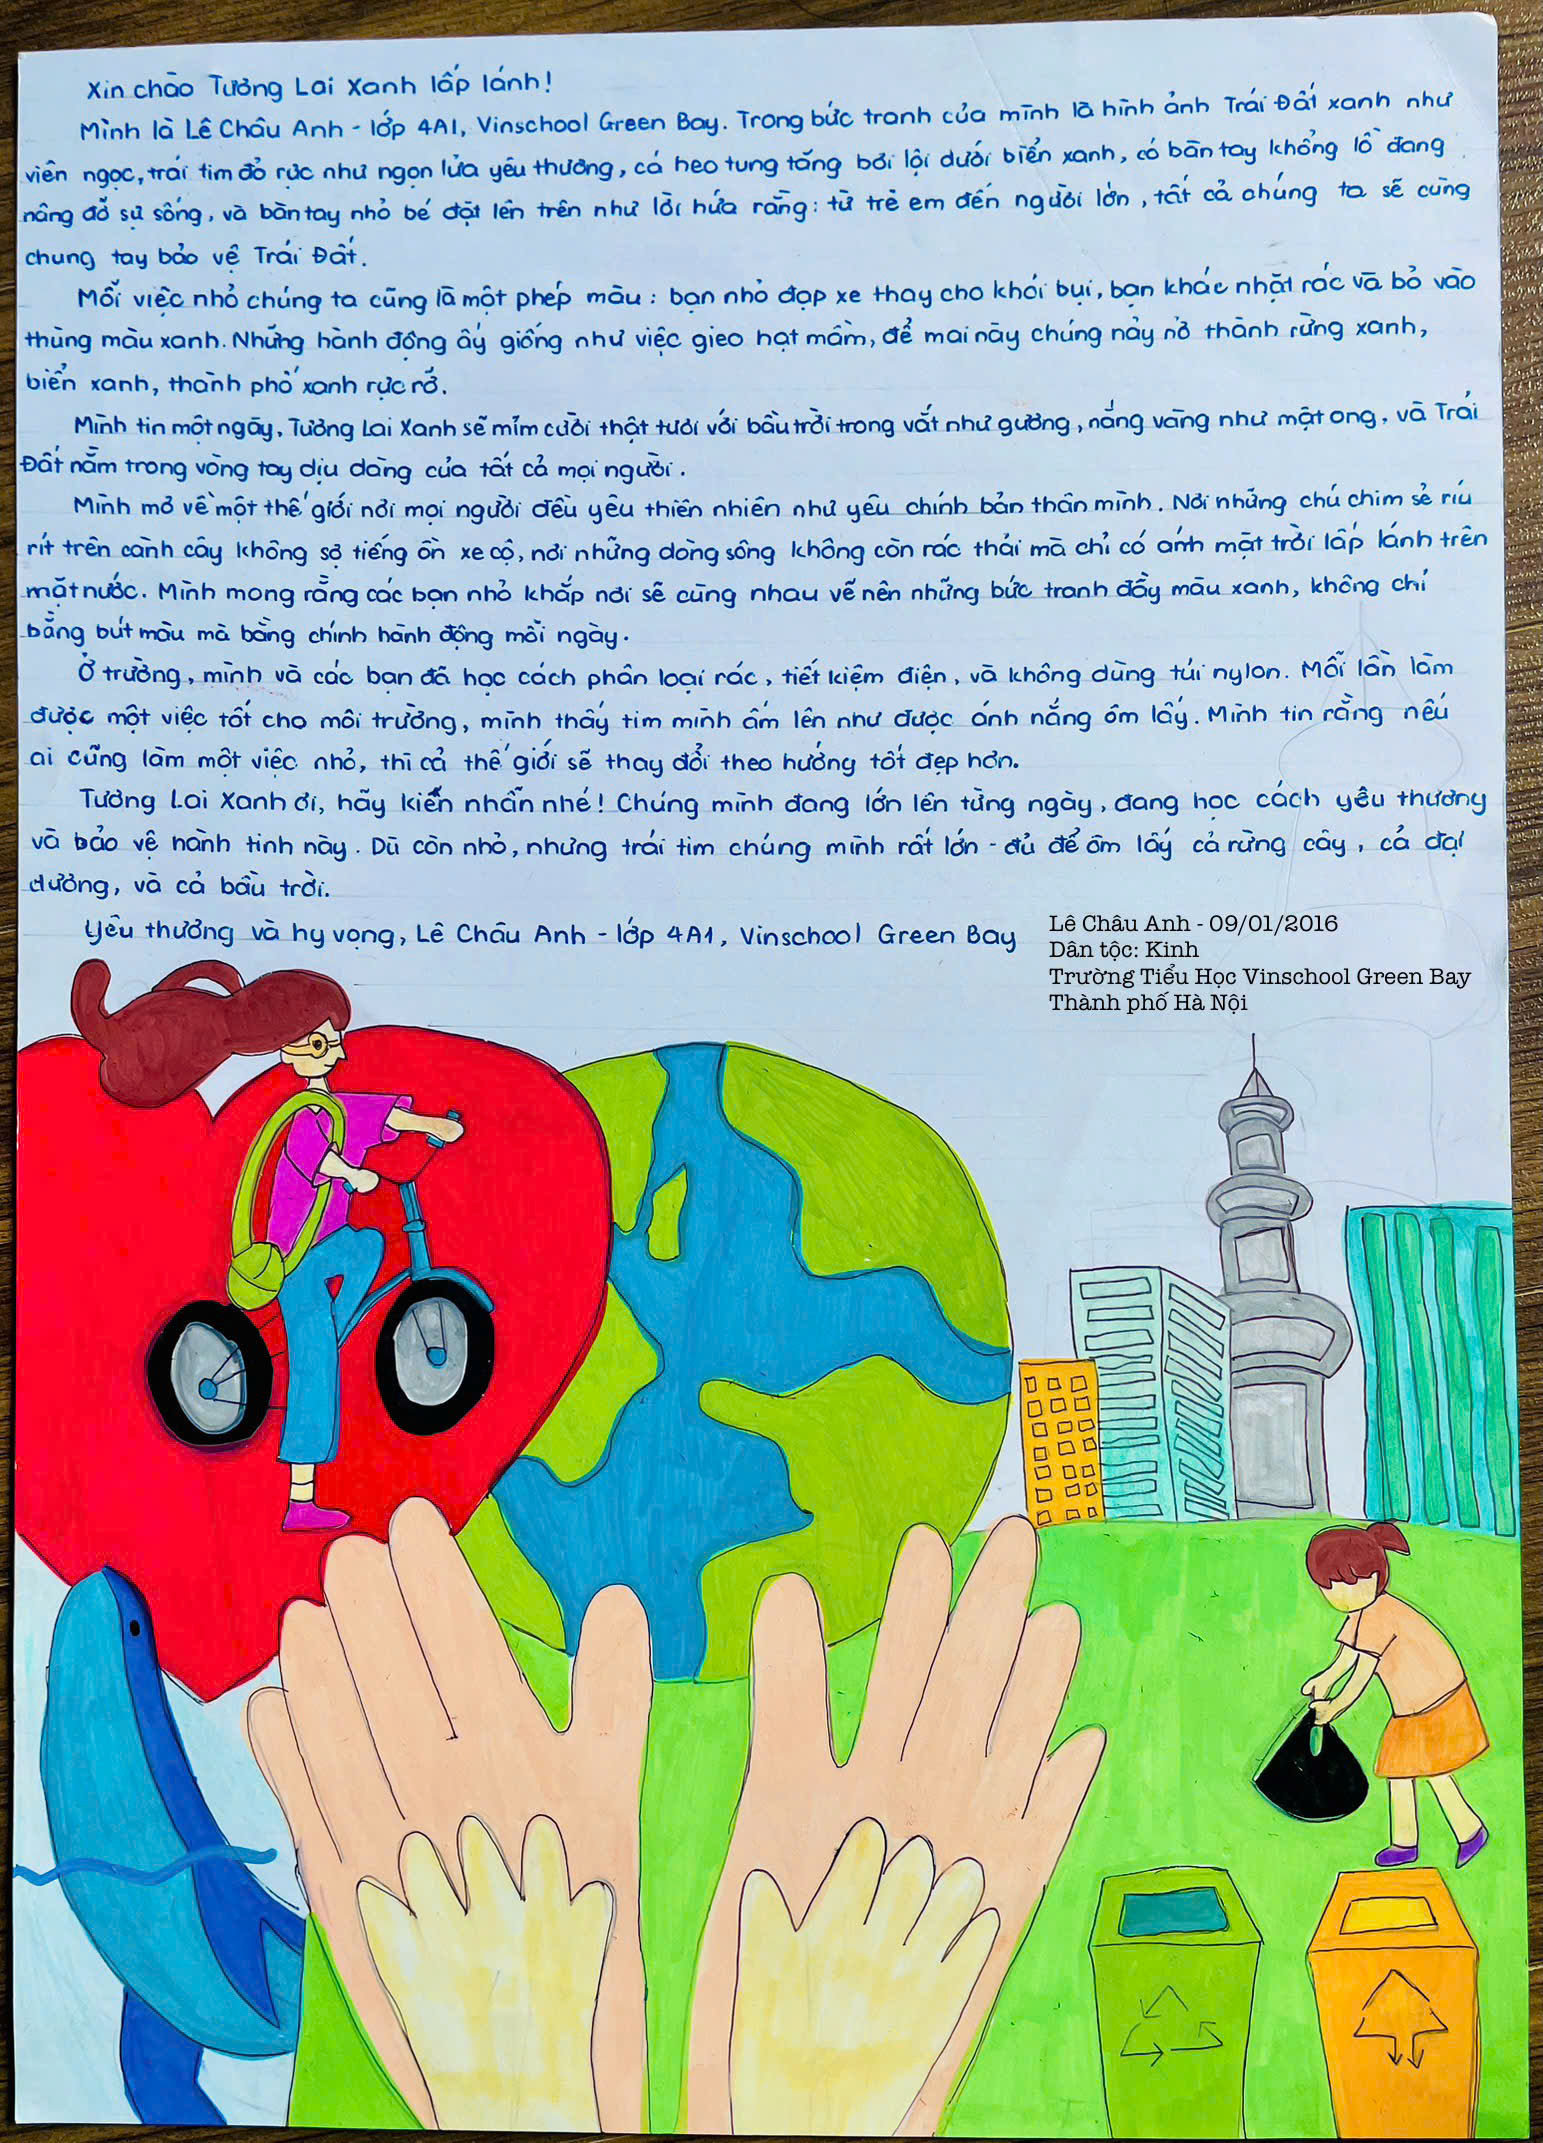 Xin chào Tương Lai Xanh lấp lánh!
Mình là Lê Châu Anh - lớp 4A1, Vinschool Green Bay. Trong bức tranh của mình là hình ảnh Trái Đất xanh như
viên ngọc, trái tim đỏ rực như ngọn lửa yêu thương, cá heo tung tăng bơi lội dưới biển xanh, có bàn tay khổng lồ đang
nâng đỡ sự sống, và bàn tay nhỏ bé đặt lên trên như lời hứa rằng: từ trẻ em đến người lớn, tất cả chúng ta sẽ cùng
chung tay bảo vệ Trái Đất.
Mỗi việc nhỏ chúng ta cũng là một phép màu: bạn nhỏ đạp xe thay cho khói bụi, bạn khác nhặt rác và bỏ vào
thùng màu xanh. Những hành động ấy giống như việc gieo hạt mầm, để mai này chúng nảy nở thành rừng xanh,
biển xanh, thành phố xanh rực rỡ.
Mình tin một ngày, Tương Lai Xanh sẽ mỉm cười thật tươi với bầu trời trong vắt như gương, nắng vàng như mật ong, và Trái
Đất nằm trong vòng tay dịu dàng của tất cả mọi người.
Mình mơ về một thế giới nơi mọi người đều yêu thiên nhiên như yêu chính bản thân mình. Nơi những chú chim sẻ ríu
rít trên cành cây không sợ tiếng ồn xe cộ, nơi những dòng sông không còn rác thải mà chỉ có ánh mặt trời lấp lánh trên
mặt nước. Mình mong rằng các bạn nhỏ khắp nơi sẽ cùng nhau vẽ nên những bức tranh đầy màu xanh, không chỉ
bằng bút màu mà bằng chính hành động mỗi ngày.
Ở trường, mình và các bạn đã học cách phân loại rác, tiết kiệm điện, và không dùng túi nylon. Mỗi lần làm
được một việc tốt cho môi trường, mình thấy tim mình ấm lên như được ánh nắng ôm lấy. Mình tin rằng nếu
ai cũng làm một việc nhỏ, thì cả thế giới sẽ thay đổi theo hướng tốt đẹp hơn.
Tương Lai Xanh ơi, hãy kiên nhẫn nhé! Chúng mình đang lớn lên từng ngày, đang học cách yêu thương
và bảo vệ hành tinh này. Dù còn nhỏ, nhưng trái tim chúng mình rất lớn - đủ để ôm lấy cả rừng cây, cả đại
dương, và cả bầu trời.
Yêu thương và hy vọng, Lê Châu Anh - lớp 4A1, Vinschool Green Bay
Lê Châu Anh - 09/01/2016
Dân tộc: Kinh
Trường Tiểu Học Vinschool Green Bay
Thành phố Hà Nội